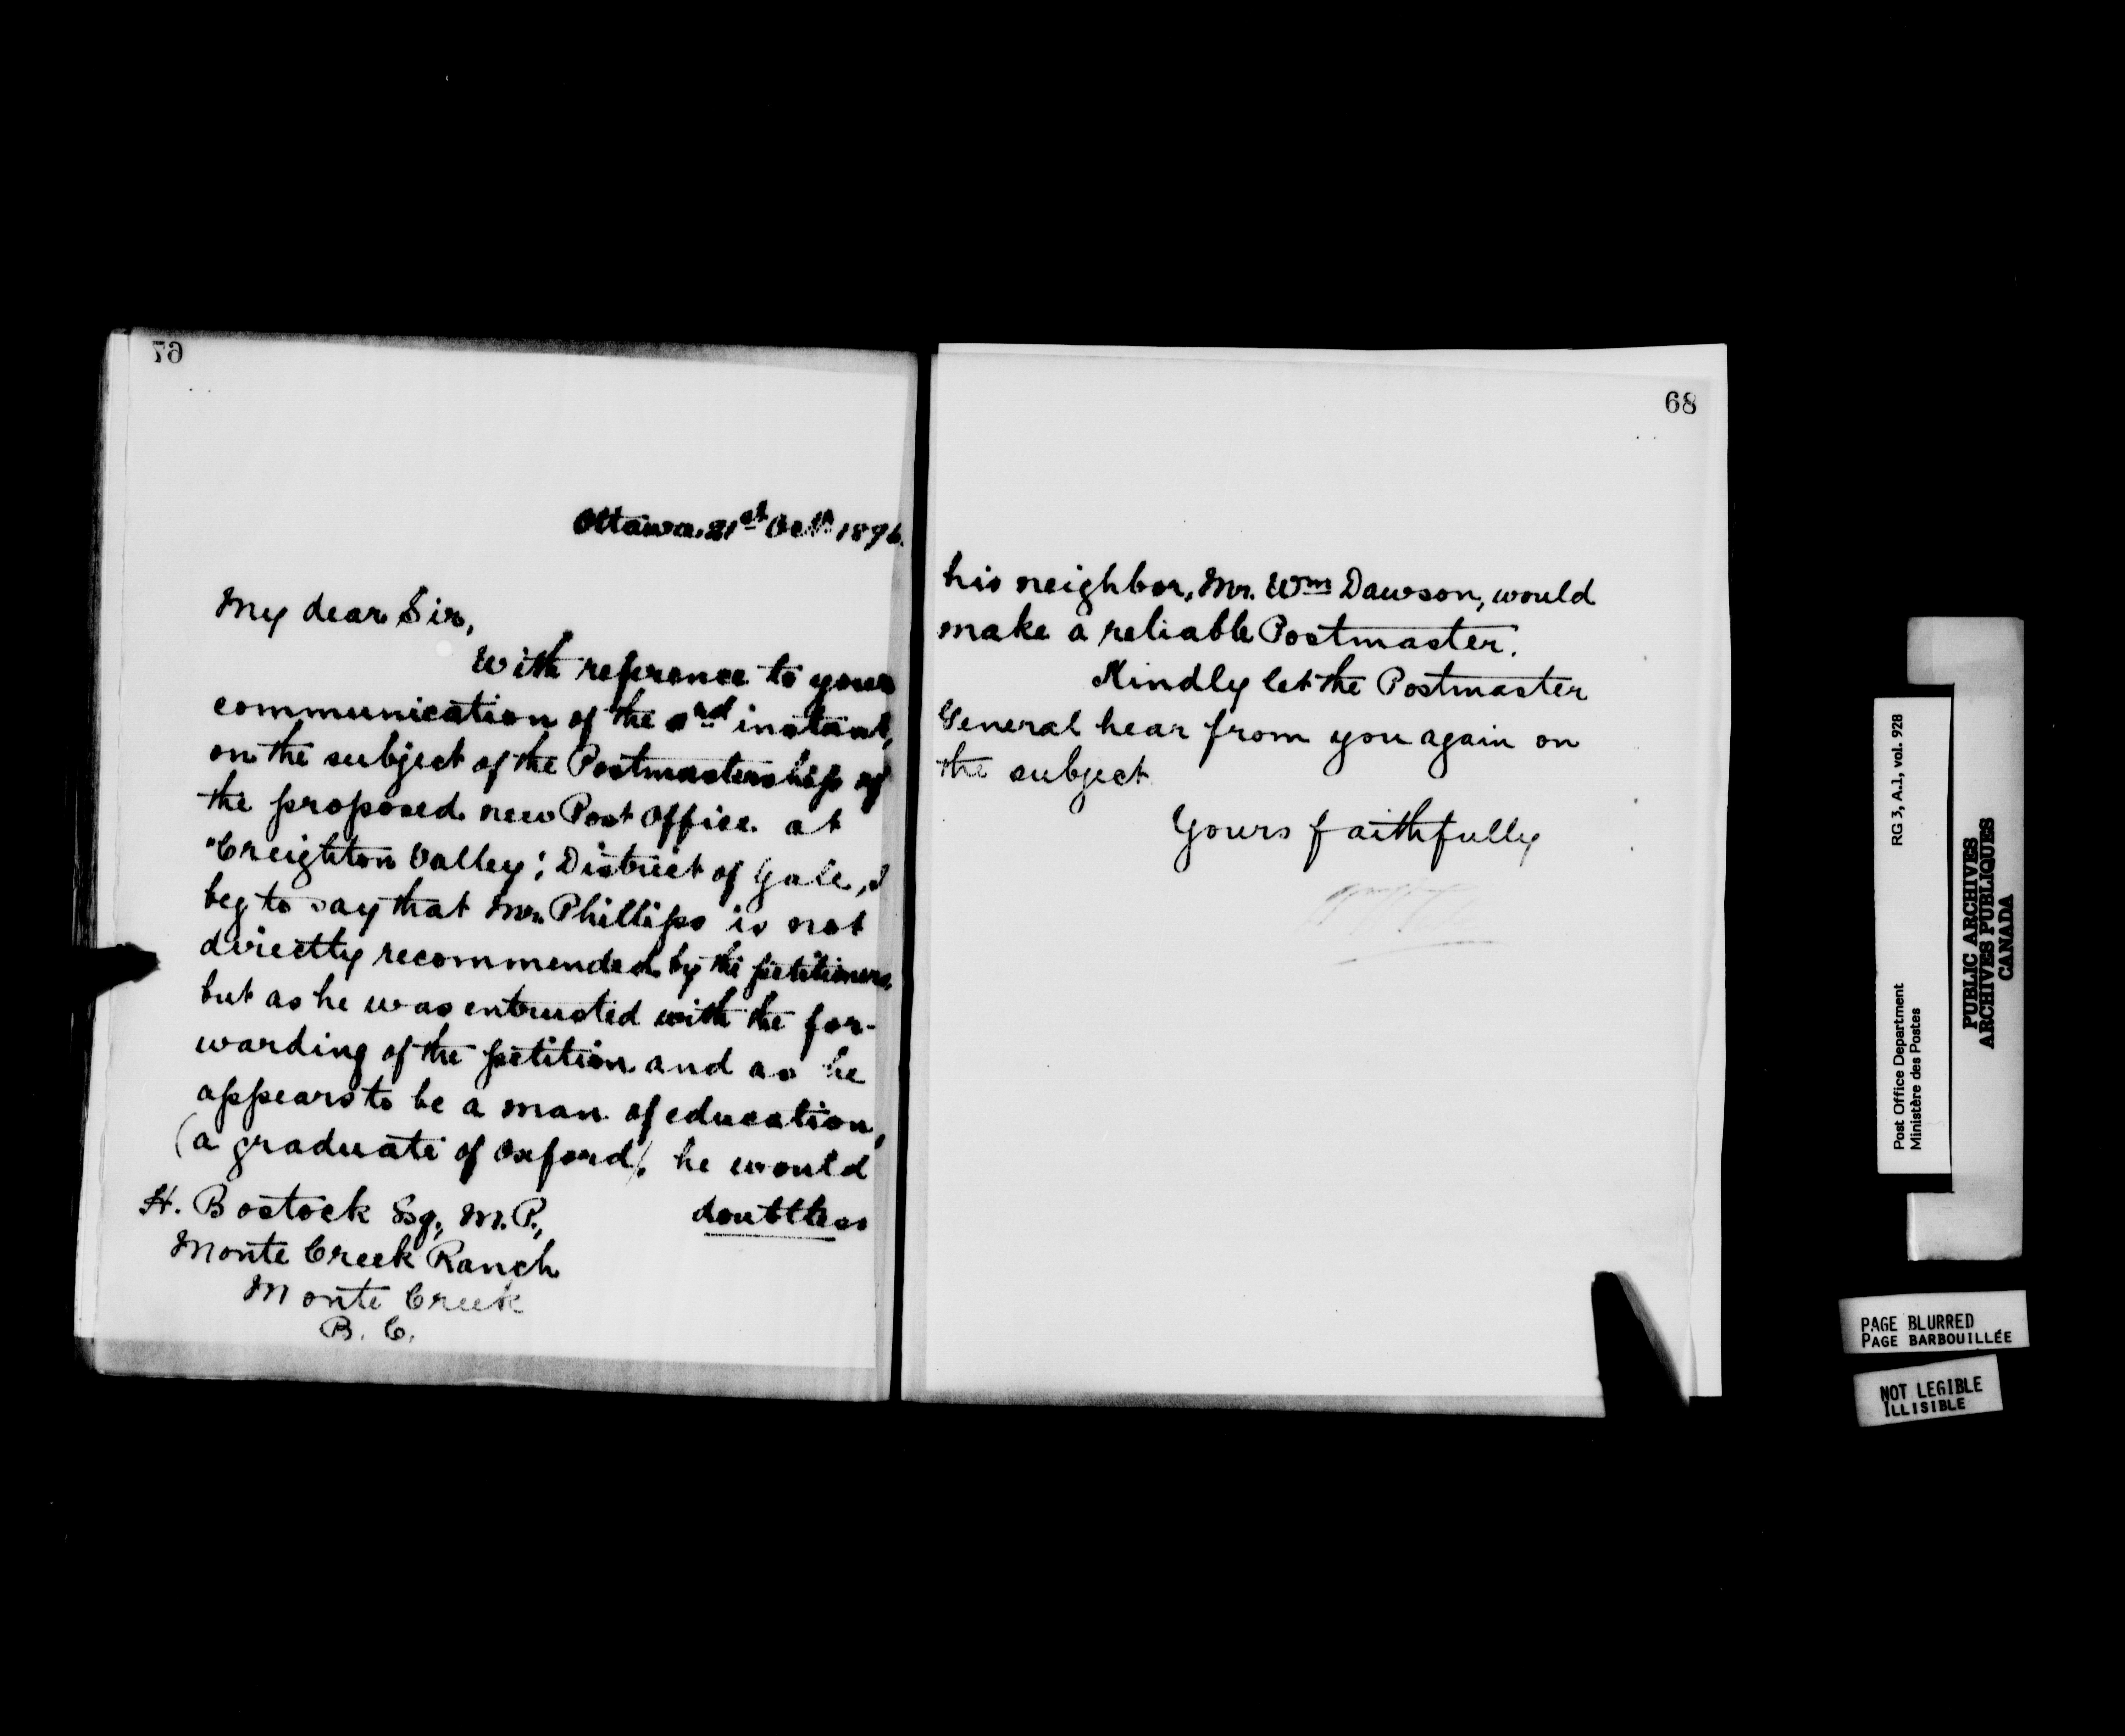 67
Ottawa, 21st Octr. 1896.
My dear Sir,
With reference to your
communication of the 3rd instant,
on the subject of the Postmastership of
the proposed new Post Office at
"Creighton Valley", District of Yale, I
beg to say that Mr. Phillips is not
directly recommended by the petitioners,
but as he was entrusted with the for-
warding of the petition and as he
appears to be a man of education,
(a graduate of Oxford), he would
doubtless
H. Bostock Esq., M.P.,
Monte Creek Ranch
Monte Creek
B. C.
68
his neighbor, Mr. Wm Dawson, would
make a reliable Postmaster.
Kindly let the Postmaster
General hear from you again on
the subject
Yours faithfully
RG 3, A.1, vol. 928
Post Office Department
Ministère des Postes
PUBLIC ARCHIVES
ARCHIVES PUBLIQUES
CANADA
PAGE BLURRED
PAGE BARBOUILLÉE
NOT LEGIBLE
ILLISIBLE